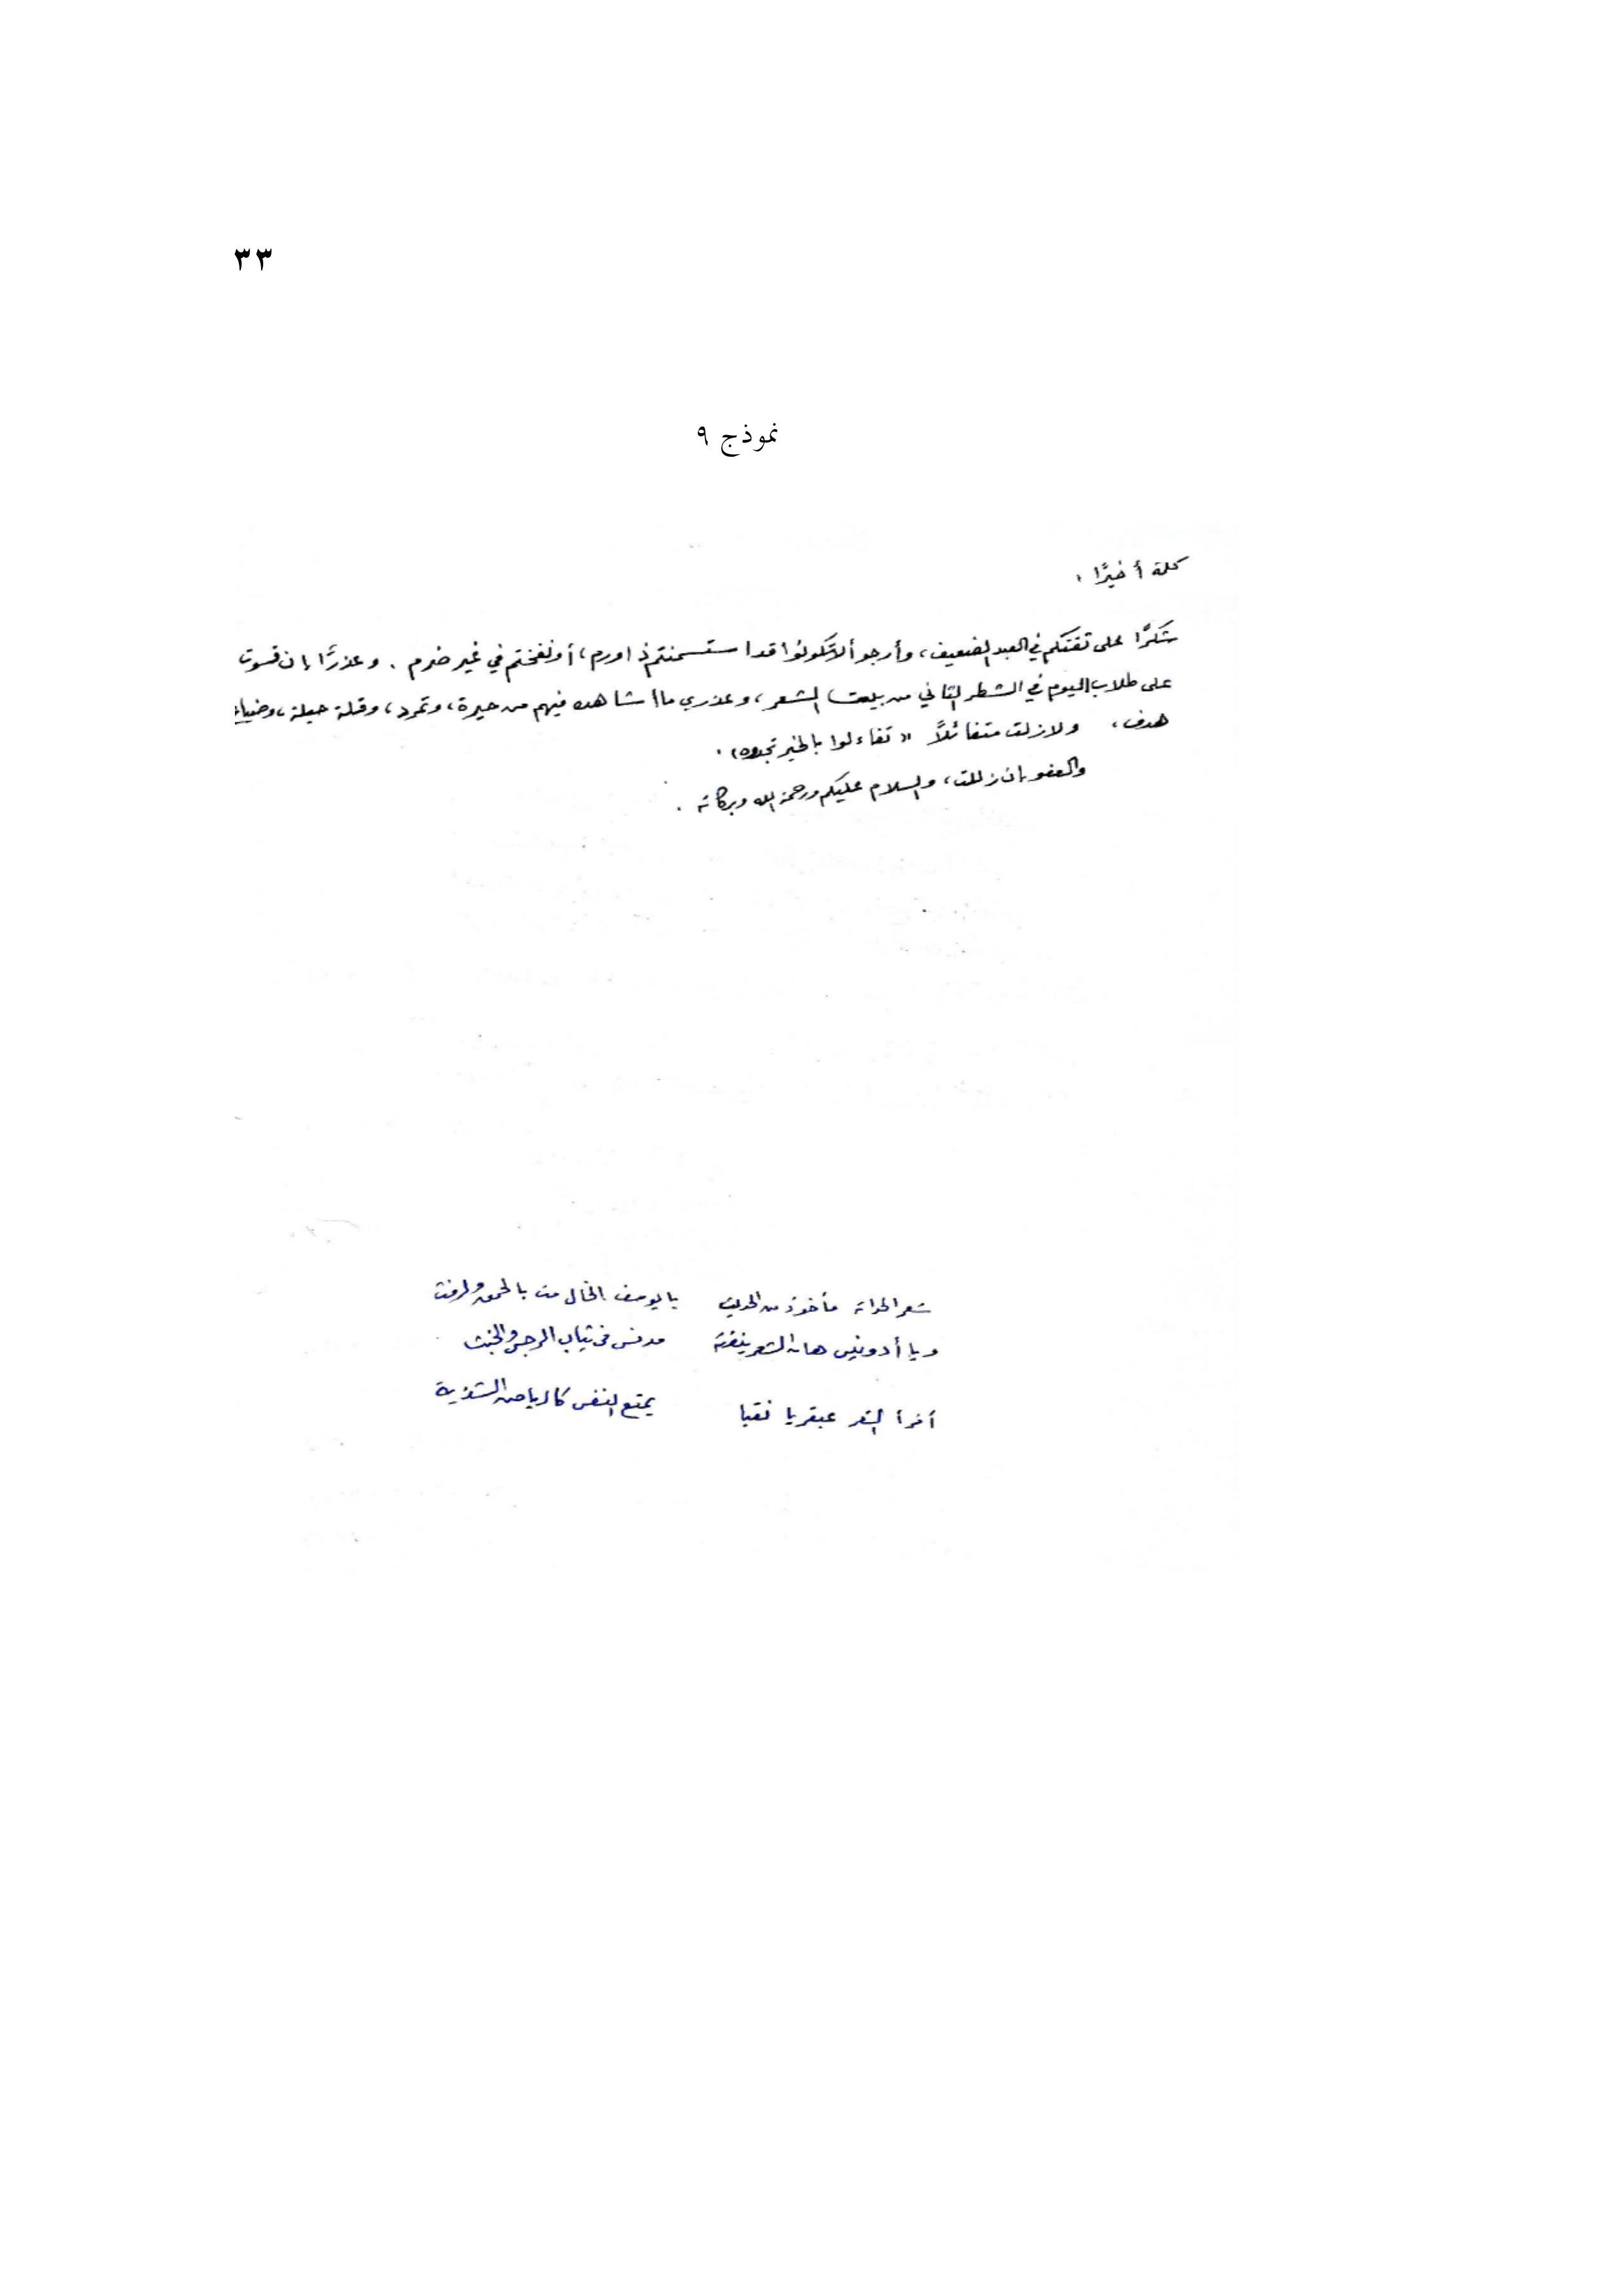 ٣٣
نموذج ٩
كلمة أخيرًا :
شكرًا على ثقتكم في العبد الضعيف، وأرجو ألا تكونوا قد استسمنتم ذا ورم، أو نفختم في غير ضرم . وعذرًا إن قسوت
على طلاب اليوم في الشطر الثاني من بيت الشعر، وعذري ما أشاهده فيهم من حيرة، وتمرد، وقلة حيلة، وضياع
هدف، ولا زلت متفائلاً « تفاءلوا بالخير تجدوه» .
والعفو إن زللت، والسلام عليكم ورحمة الله وبركاته .
شعر الحداثة مأخوذ من الحدث يا يوسف الخال مت بالحمق والرفث
ويا أدونيس هات الشعر مدنس في ثياب الرجس والخبث
أقرأ الشعر عبقريا نقيا يمتع النفس كالرياض الشذية